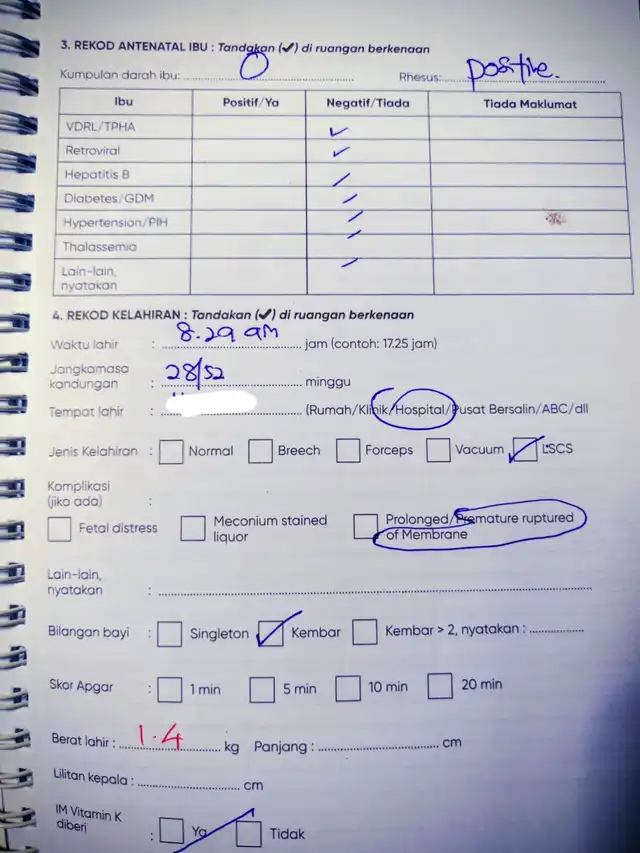 3. REKOD ANTENATAL IBU : Tandakan (✔) di ruangan berkenaan
Kumpulan darah ibu: O Rhesus: positive.
Ibu Positif/Ya Negatif/Tiada Tiada Maklumat
VDRL/TPHA ✓
Retroviral ✓
Hepatitis B /
Diabetes/GDM /
Hypertension/PIH /
Thalassemia /
Lain-lain, /
nyatakan
4. REKOD KELAHIRAN : Tandakan (✔) di ruangan berkenaan
Waktu lahir : 8.29 am jam (contoh: 17.25 jam)
Jangkamasa
kandungan : 28/52 minggu
Tempat lahir : (Rumah/Klinik/Hospital/Pusat Bersalin/ABC/dll
Jenis Kelahiran : Normal Breech Forceps Vacuum ✓ LSCS
Komplikasi
(jika ada) :
Fetal distress Meconium stained liquor Prolonged/Premature ruptured of Membrane
Lain-lain,
nyatakan :
Bilangan bayi : Singleton ✓ Kembar Kembar > 2, nyatakan :
Skor Apgar : 1 min 5 min 10 min 20 min
Berat lahir : 1.4 kg Panjang : cm
Lilitan kepala : cm
IM Vitamin K
diberi : Ya Tidak